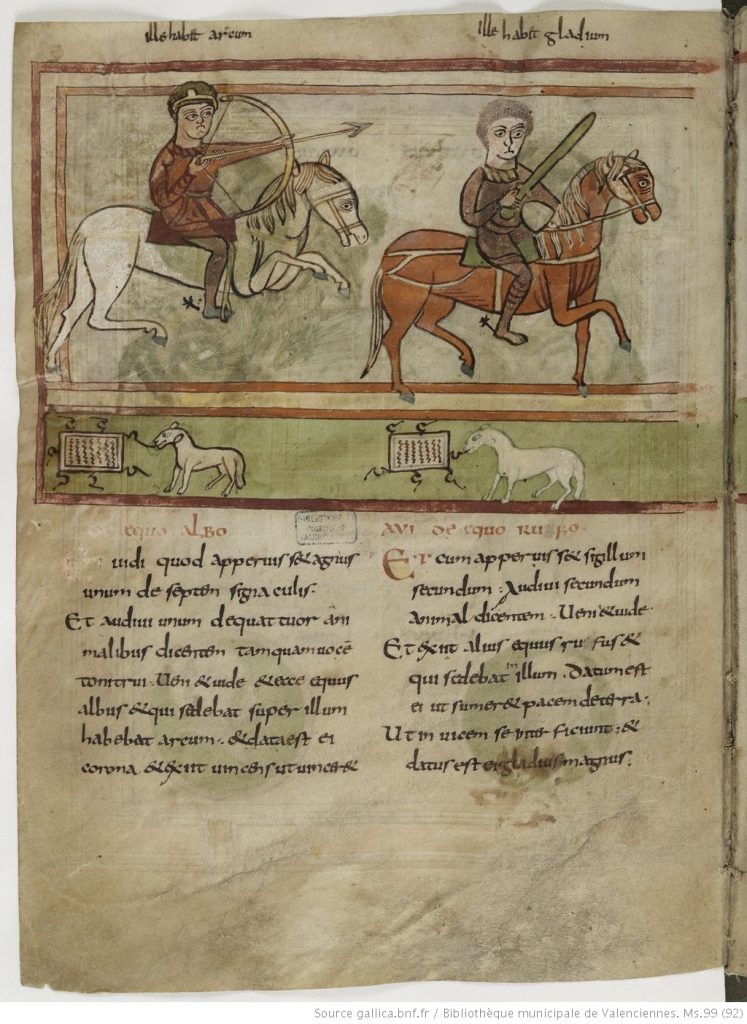 ille habit arcum
ille habit gladium
equo albo
uidi quod apperuis& agnus
unum de septem signaculis.
Et audiui unum de quattuor ani
malibus dicentem tamquam uocē
tonitrui. Ueni & uide & ecce equus
albus & qui sedebat super illum
habebat arcum. & data est ei
corona & exiit uincens ut uincer&
de equo rufo
Et cum apperuis& sigillum
secundum. Audiui secundum
animal dicentem. Ueni & uide
Et exiit alius equus rufus &
qui sedebat illum. Datum est
ei ut sumer& pacem de terra.
Ut inuicem se inter ficiunt. &
datus est ei gladius magnus.
Source gallica.bnf.fr / Bibliothèque municipale de Valenciennes. Ms.99 (92)